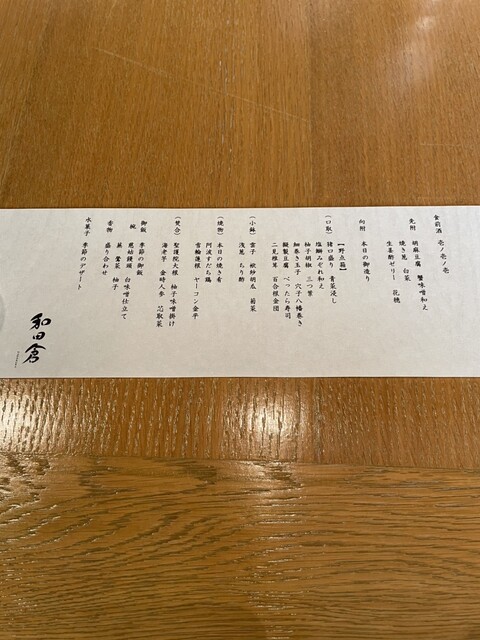 食前酒 壱ノ一ノ壱
先附 胡麻豆腐 蟹味噌和え
焼き葱 白菜
生姜酢ゼリー 花穂
向附 本日の御造り
【野点箱】
(口取) 猪口盛り 青菜浸し
塩鰤みぞれ和え
柚子胡椒 三つ葉
細巻き玉子 穴子八幡巻き
擬製豆腐 べったら寿司
二見椎茸 百合根金団
(小鉢) 雲子 砂胡瓜 菊菜
浅葱 ちり酢
(焼物) 本日の焼き肴
阿波すだち鶏
雪輪蓮根 ヤーコン金平
(焚合) 聖護院大根 柚子味噌掛け
海老芋 金時人参 芯取菜
御飯 季節の御飯
椀 慈姑饅頭 白味噌仕立て
蕪 鶯菜 柚子
香物 盛り合わせ
水菓子 季節のデザート
和田倉